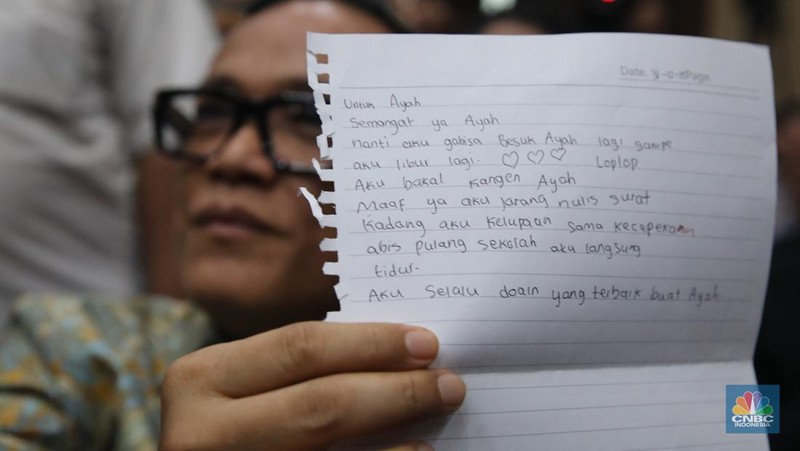 Date: Page:
Untuk Ayah
Semangat ya Ayah
nanti aku gabisa Besuk Ayah lagi sampe
aku libur lagi. ♡ ♡ ♡ Loplop
Aku bakal kangen Ayah
Maaf ya aku jarang nulis surat
Kadang aku kelupaan sama kecapekan
abis pulang sekolah aku langsung
tidur.
Aku selalu doain yang terbaik buat Ayah
CNBC
INDONESIA